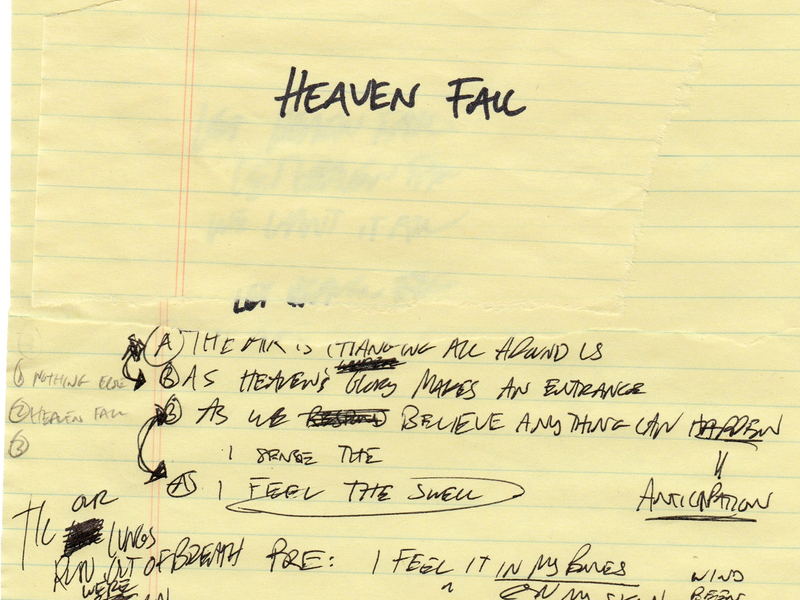 HEAVEN FALL
LET
A) THE AIR IS CHANGING ALL AROUND US
① NOTHING ELSE
B) AS HEAVEN'S GLORY MAKES AN ENTRANCE
② HEAVEN FALL
B) AS WE RESPOND BELIEVE ANYTHING CAN HAPPEN
③
I SENSE THE
"
A) I FEEL THE SWELL
ANTICIPATION
TIL OUR LUNGS
RUN OUT OF BREATH
PRE: I FEEL IT IN MY BONES
WIND
WE'RE
ON MY SKIN
BEEN